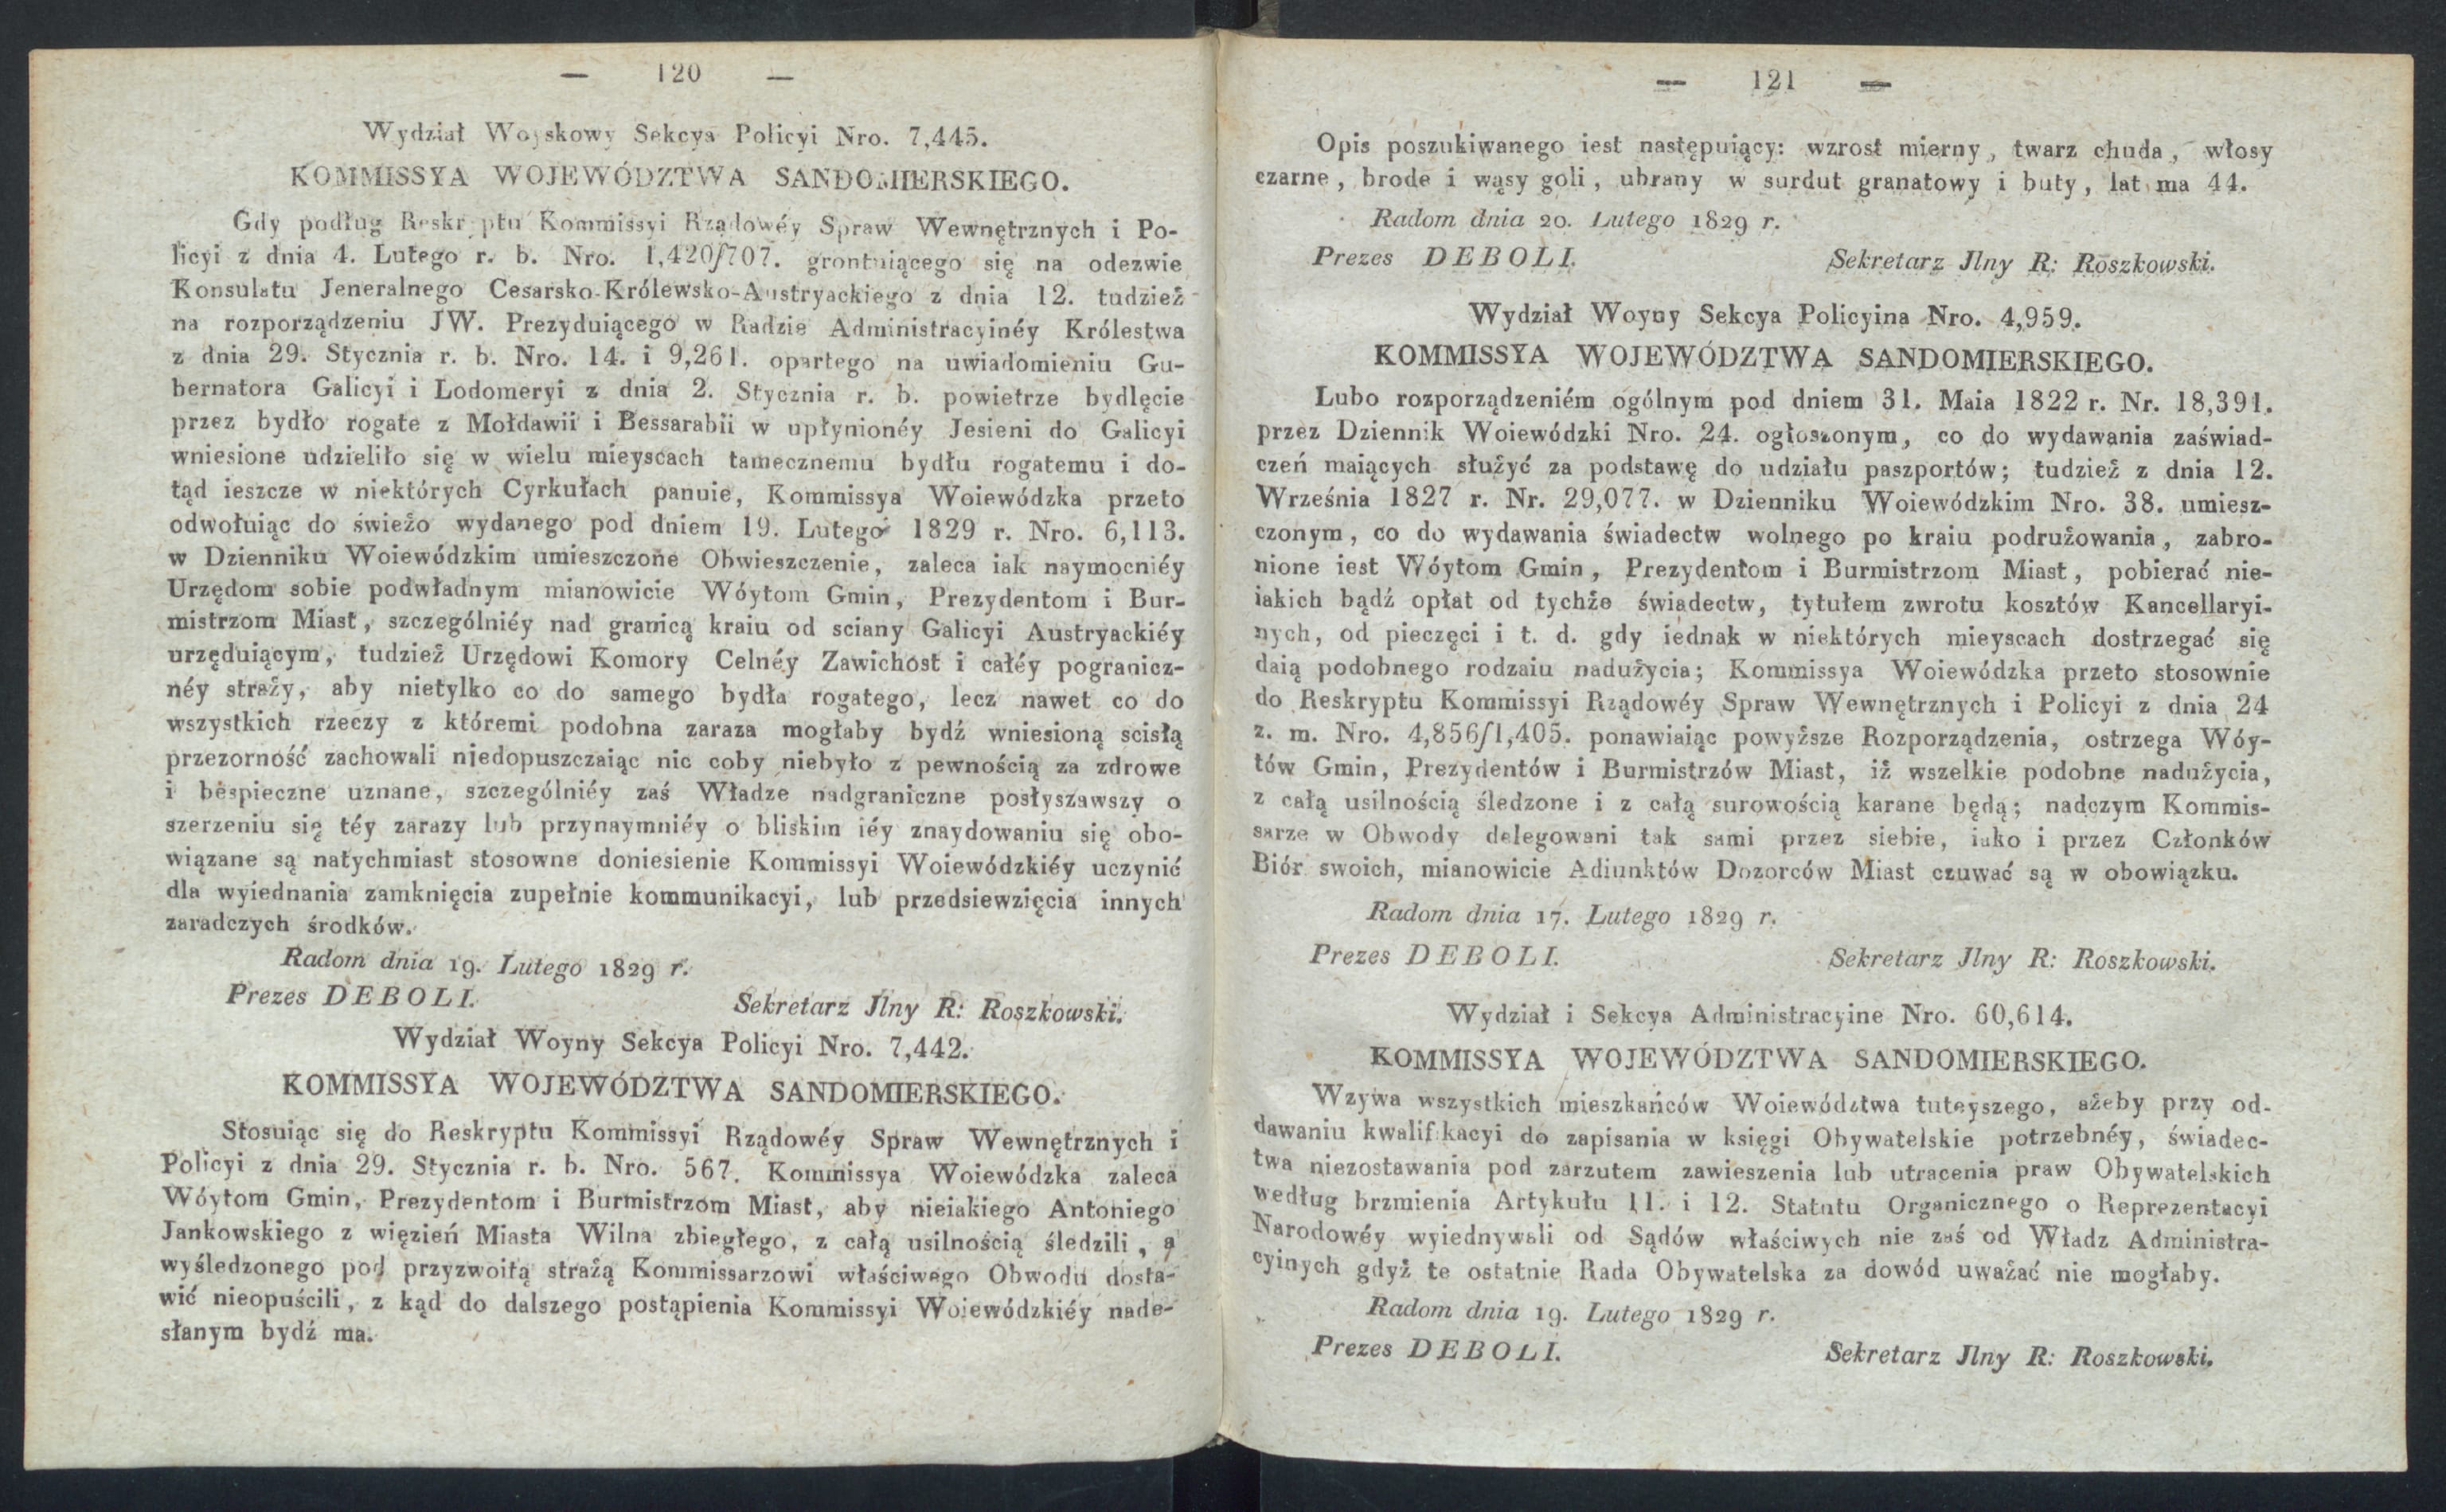 — 120 —
Wydział Woyskowy Sekcya Policyi Nro. 7,445.
KOMMISSYA WOJEWÓDZTWA SANDOMIERSKIEGO.
Gdy podług Reskryptu Kommissyi Rządowéy Spraw Wewnętrznych i Po-
licyi z dnia 4. Lutego r. b. Nro. 1,420/707. grontuiącego się na odezwie
Konsulatu Jeneralnego Cesarsko-Królewsko-Austryackiego z dnia 12. tudzież
na rozporządzeniu JW. Prezyduiącego w Radzie Administracyinéy Królestwa
z dnia 29. Stycznia r. b. Nro. 14. i 9,261. opartego na uwiadomieniu Gu-
bernatora Galicyi i Lodomeryi z dnia 2. Stycznia r. b. powietrze bydlęcie
przez bydło rogate z Mołdawii i Bessarabii w upłynionéy Jesieni do Galicyi
wniesione udzieliło się w wielu mieyscach tamecznemu bydłu rogatemu i do-
tąd ieszcze w niektórych Cyrkułach panuie, Kommissya Woiewódzka przeto
odwołuiąc do świeżo wydanego pod dniem 19. Lutego 1829 r. Nro. 6,113.
w Dzienniku Woiewódzkim umieszczone Obwieszczenie, zaleca iak naymocniéy
Urzędom sobie podwładnym mianowicie Wóytom Gmin, Prezydentom i Bur-
mistrzom Miast, szczególniéy nad granicą kraiu od sciany Galicyi Austryackiéy
urzęduiącym, tudzież Urzędowi Komory Celnéy Zawichost i całéy pogranicz-
néy straży, aby nietylko co do samego bydła rogatego, lecz nawet co do
wszystkich rzeczy z któremi podobna zaraza mogłaby bydź wniesioną scisłą
przezorność zachowali niedopuszczaiąc nic coby niebyło z pewnością za zdrowe
i béspieczne uznane, szczególniéy zaś Władze nadgraniczne posłyszawszy o
szerzeniu się téy zarazy lub przynaymniéy o bliskim iéy znaydowaniu się obo-
wiązane są natychmiast stosowne doniesienie Kommissyi Woiewódzkiéy uczynić
dla wyiednania zamknięcia zupełnie kommunikacyi, lub przedsiewzięcia innych
zaradczych środków.
Radom dnia 19. Lutego 1829 r.
Prezes DEBOLI. Sekretarz Jlny R: Roszkowski.
Wydział Woyny Sekcya Policyi Nro. 7,442.
KOMMISSYA WOJEWÓDZTWA SANDOMIERSKIEGO.
Stosuiąc się do Reskryptu Kommissyi Rządowéy Spraw Wewnętrznych i
Policyi z dnia 29. Stycznia r. b. Nro. 567. Kommissya Woiewódzka zaleca
Wóytom Gmin, Prezydentom i Burmistrzom Miast, aby nieiakiego Antoniego
Jankowskiego z więzień Miasta Wilna zbiegłego, z całą usilnością śledzili, a
wyśledzonego pod przyzwoitą strażą Kommissarzowi właściwego Obwodu dosta-
wić nieopuścili, z kąd do dalszego postąpienia Kommissyi Woiewódzkiéy nade-
słanym bydź ma.
— 121 —
Opis poszukiwanego iest następuiący: wzrost mierny, twarz chuda, włosy
czarne, brode i wąsy goli, ubrany w surdut granatowy i buty, lat ma 44.
Radom dnia 20. Lutego 1829 r.
Prezes DEBOLI. Sekretarz Jlny R: Roszkowski.
Wydział Woyny Sekcya Policyina Nro. 4,959.
KOMMISSYA WOJEWÓDZTWA SANDOMIERSKIEGO.
Lubo rozporządzeniém ogólnym pod dniem 31. Maia 1822 r. Nr. 18,391.
przez Dziennik Woiewódzki Nro. 24. ogłoszonym, co do wydawania zaświad-
czeń maiących służyć za podstawę do udziału paszportów; tudzież z dnia 12.
Września 1827 r. Nr. 29,077. w Dzienniku Woiewódzkim Nro. 38. umiesz-
czonym, co do wydawania świadectw wolnego po kraiu podrużowania, zabro-
nione iest Wóytom Gmin, Prezydentom i Burmistrzom Miast, pobierać nie-
iakich bądź opłat od tychże świadectw, tytułem zwrotu kosztów Kancellaryi-
nych, od pieczęci i t. d. gdy iednak w niektórych mieyscach dostrzegać się
daią podobnego rodzaiu nadużycia; Kommissya Woiewódzka przeto stosownie
do Reskryptu Kommissyi Rządowéy Spraw Wewnętrznych i Policyi z dnia 24
z. m. Nro. 4,856/1,405. ponawiaiąc powyższe Rozporządzenia, ostrzega Wóy-
tów Gmin, Prezydentów i Burmistrzów Miast, iż wszelkie podobne nadużycia,
z całą usilnością śledzone i z całą surowością karane będą; nadczym Kommis-
sarze w Obwody delegowani tak sami przez siebie, iako i przez Członków
Biór swoich, mianowicie Adiunktów Dozorców Miast czuwać są w obowiązku.
Radom dnia 17. Lutego 1829 r.
Prezes DEBOLI. Sekretarz Jlny R: Roszkowski.
Wydział i Sekcya Administracyine Nro. 60,614.
KOMMISSYA WOJEWÓDZTWA SANDOMIERSKIEGO.
Wzywa wszystkich mieszkańców Woiewództwa tuteyszego, ażeby przy od-
dawaniu kwalifikacyi do zapisania w księgi Obywatelskie potrzebnéy, świadec-
twa niezostawania pod zarzutem zawieszenia lub utracenia praw Obywatelskich
według brzmienia Artykułu 11. i 12. Statutu Organicznego o Reprezentacyi
Narodowéy wyiednywali od Sądów właściwych nie zaś od Władz Administra-
cyinych gdyż te ostatnie Rada Obywatelska za dowód uważać nie mogłaby.
Radom dnia 19. Lutego 1829 r.
Prezes DEBOLI. Sekretarz Jlny R: Roszkowski.